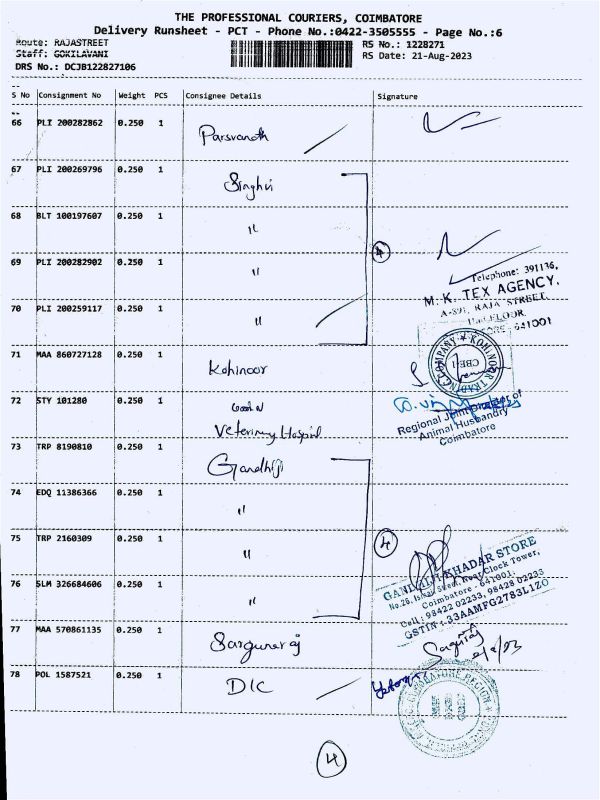 THE PROFESSIONAL COURIERS, COIMBATORE
Delivery Runsheet - PCT - Phone No.:0422-3505555 - Page No.:6
Route: RAJASTREET
RS No.: 1228271
Staff: GOKILAVANI
RS Date: 21-Aug-2023
DRS No.: DCJB122827106
S No Consignment No Weight PCS Consignee Details Signature
66 PLI 200282862 0.250 1 Parsvanath
67 PLI 200269796 0.250 1 Singhvi
68 BLT 100197607 0.250 1 "
69 PLI 200282902 0.250 1 "
4
70 PLI 200259117 0.250 1 "
Telephone: 391136,
M. K. TEX AGENCY,
RAJA STREET,
FLOOR,
641001
71 MAA 860727128 0.250 1 Kohinoor
KOHINOOR TRADING COMPANY
CBE-1
72 STY 101280 0.250 1
Veterinary Hospital
Regional Joint Director of
Animal Husbandry
Coimbatore
73 TRP 8190810 0.250 1 Gandhiji
74 EDQ 11386366 0.250 1 "
75 TRP 2160309 0.250 1 "
4
76 SLM 326684606 0.250 1 "
GANDHIJI KHADAR STORE
Near Clock Tower,
Coimbatore - 641001.
Cell: 98422 02233, 98428 02233
GSTIN : 33AAMFG2783L1ZO
77 MAA 570861135 0.250 1 Sargunaraj
78 POL 1587521 0.250 1 DIC
COIMBATORE REGION
4